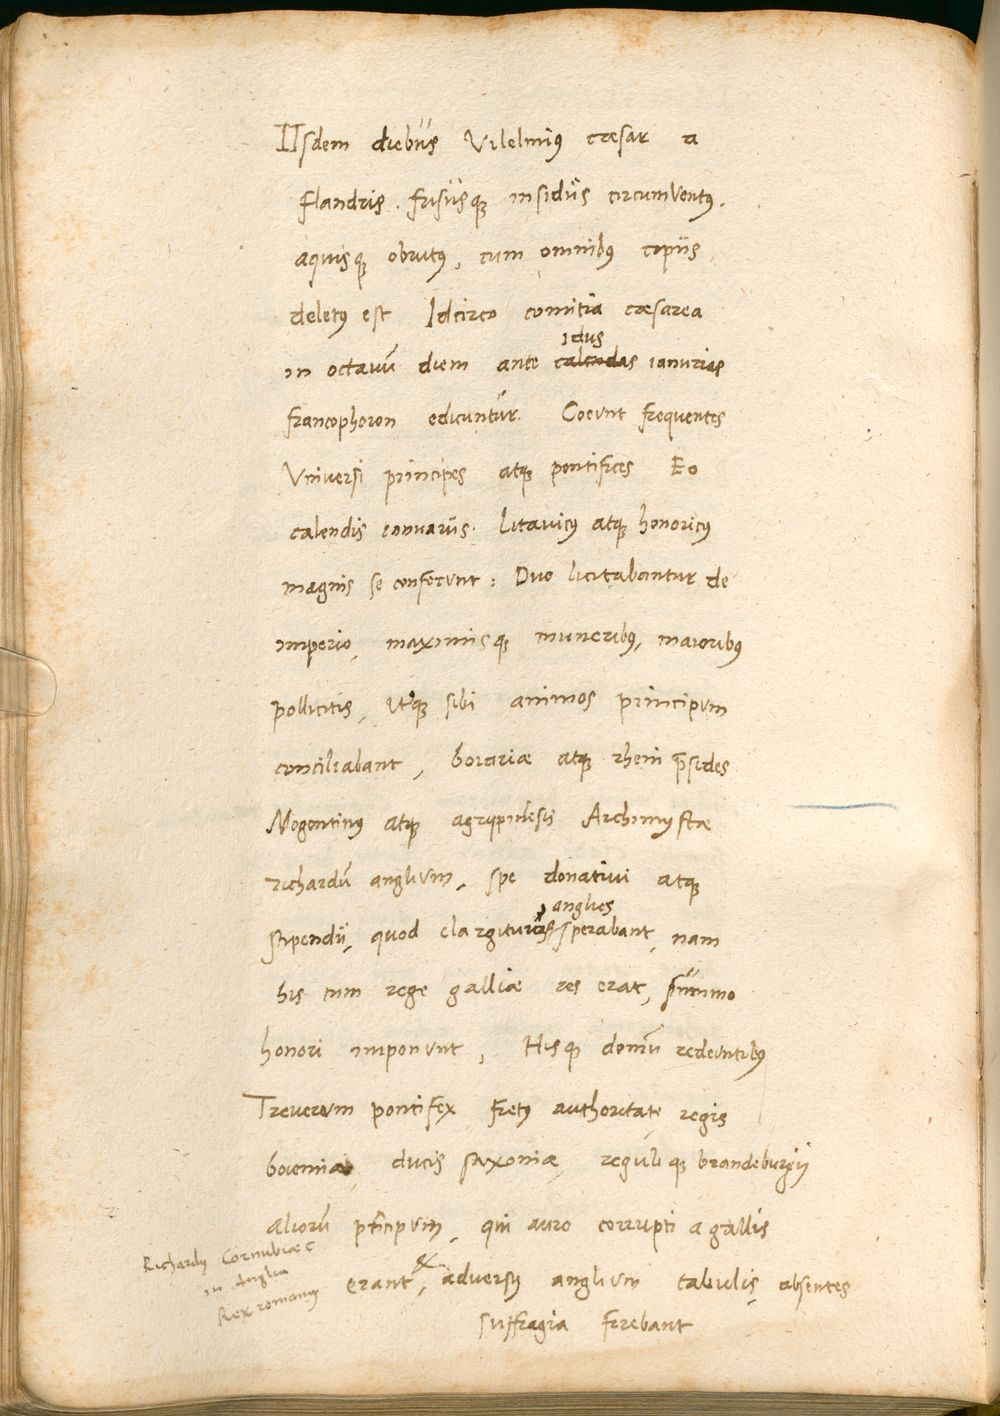 IIsdem diebus Vilelmiꝰ cæsar a
flandris . frisiisqꝫ insidiis circumventꝰ.
aquisqꝫ obrutꝰ, cum omnibꝰ copiis
deletꝰ est Idcirco comitia cæsarea
idus
in octauū diem ante calendas ianurias
francophoron edicuntur. Coeunt frequentes
Vniversi principes atqꝫ pontifices Eo
calendis ianuariis. Litavicꝰ atqꝫ honoricꝰ
magnis se conferunt : Duo licitabantur de
imperio, maximisqꝫ muneribꝰ, maioribꝰ
pollicitis, utqꝫ sibi animos principum
conciliabant, boiariæ atqꝫ rheni p̄sides
Mogontinꝰ atqꝫ agrippinēsis Archimystæ
richardū anglum, spe donativi atqꝫ
anglus
stipendii, quod elargiturus sperabant, nam
his cum rege galliæ res erat, summo
honori imponunt, Hisqꝫ domū redeuntibꝰ
Treverum pontifex fretꝰ authoritate regis
boiemiæ, ducis saxoniæ, reguliqꝫ brandeburgii
aliorū pr̄ncipum, qui auro corrupti a gallis
erant, ex adversꝰ anglum tabulis, absentes
suffragia ferebant
Richardꝰ Cornubiæ c
in Anglia
Rex romanꝰ